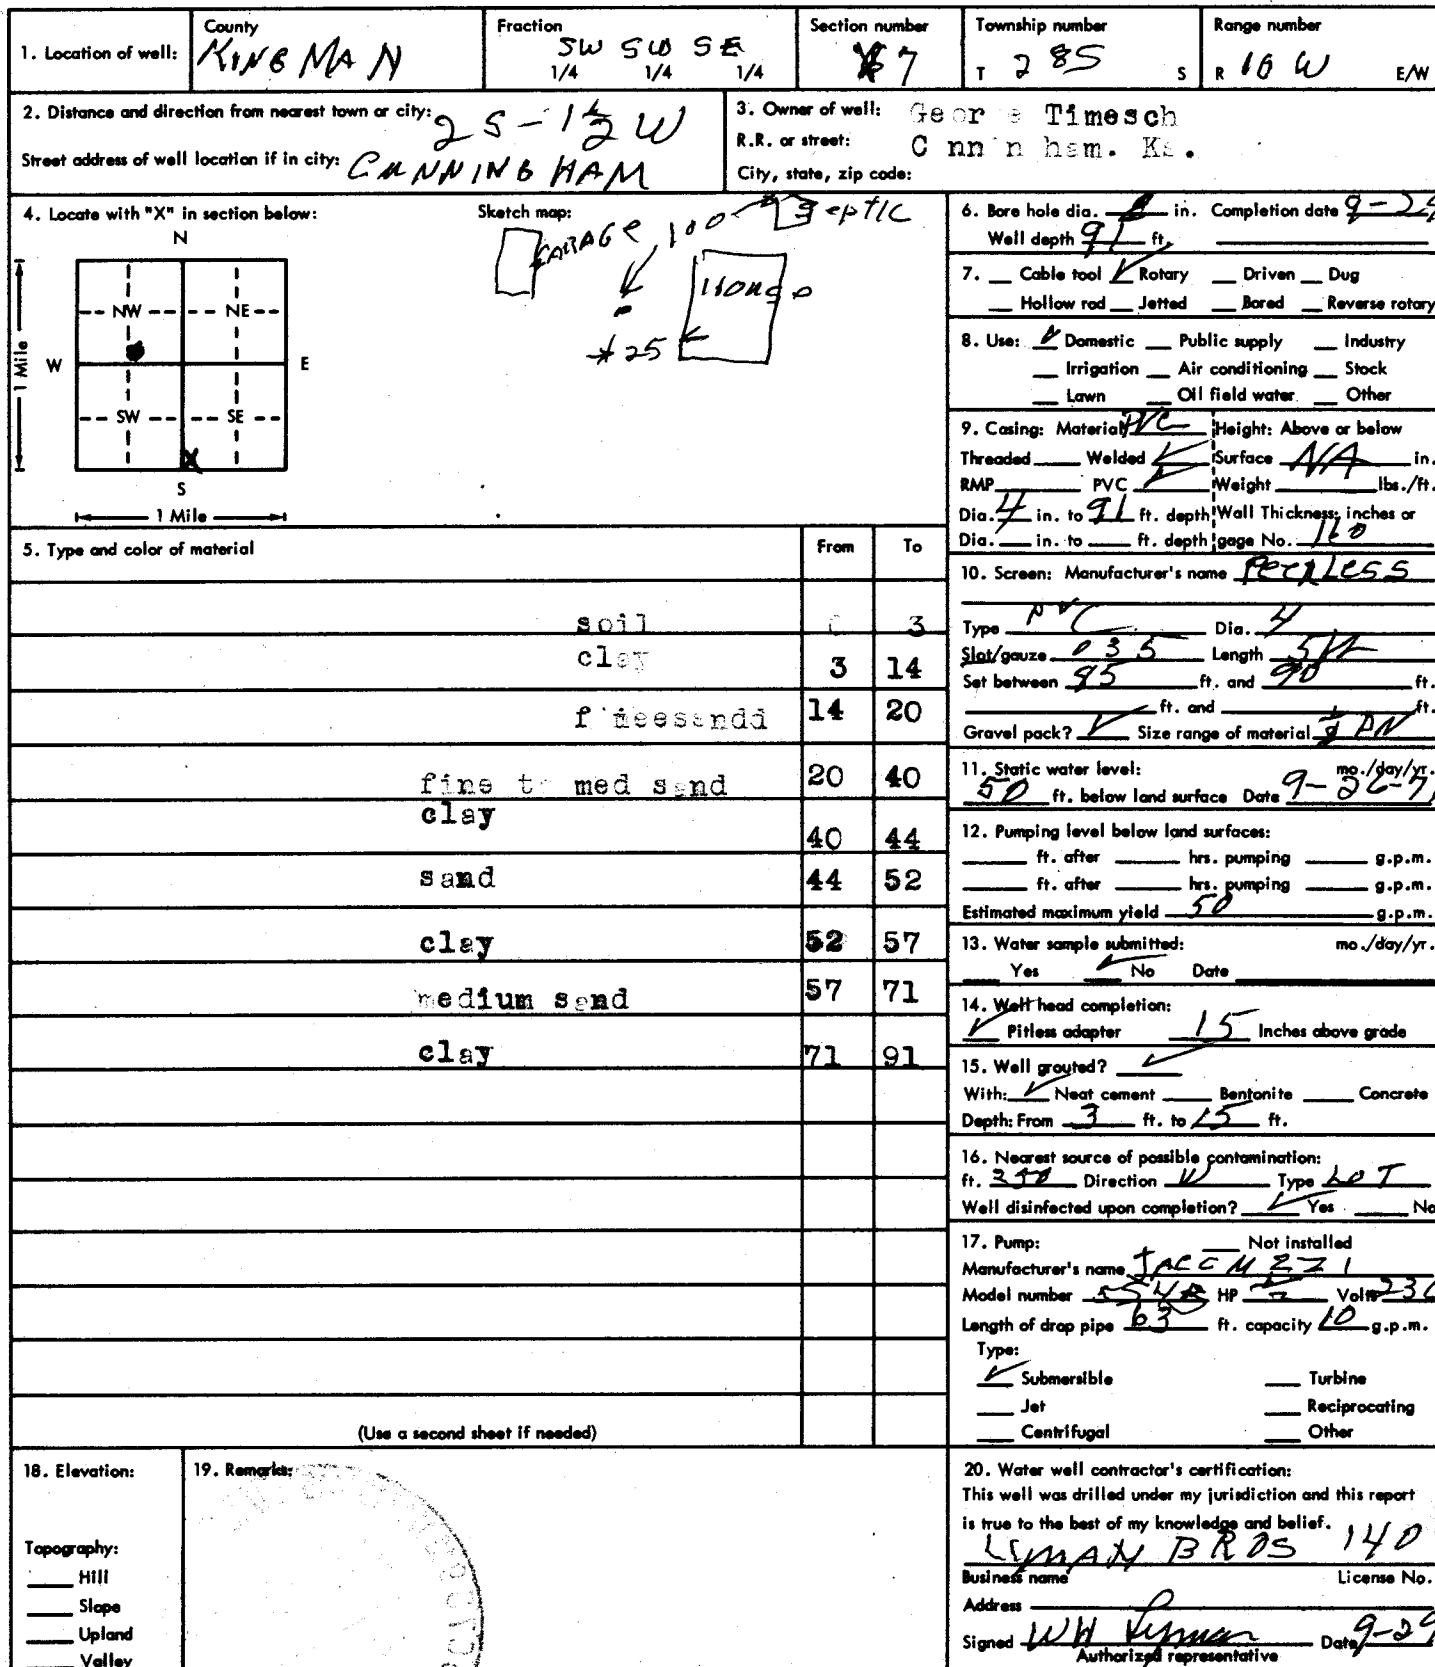 1. Location of well: County KINGMAN Fraction SW SW SE 1/4 1/4 1/4 Section number 7 Township number T 28S S Range number R 10 W E/W
2. Distance and direction from nearest town or city: 2S-1½W
Street address of well location if in city: CUNNINGHAM
3. Owner of well: Geor e Timesch
R.R. or street: C nn n ham. Ks.
City, state, zip code:
4. Locate with "X" in section below:
N
NW NE
W E
SW SE
X
S
1 Mile
1 Mile
Sketch map:
GARAGE 100 Septic
House
25
5. Type and color of material From To
soil 3
clay 3 14
f neesandd 14 20
fine t med sand 20 40
clay 40 44
sand 44 52
clay 52 57
medium sand 57 71
clay 71 91
(Use a second sheet if needed)
6. Bore hole dia. in. Completion date 9-29
Well depth 91 ft.
7. Cable tool ✓ Rotary Driven Dug
Hollow rod Jetted Bored Reverse rotary
8. Use: ✓ Domestic Public supply Industry
Irrigation Air conditioning Stock
Lawn Oil field water Other
9. Casing: Material PVC Height: Above or below
Threaded Welded ✓ Surface NA in.
RMP PVC ✓ Weight lbs./ft.
Dia. 4 in. to 91 ft. depth Wall Thickness: inches or
Dia. in. to ft. depth gage No. 160
10. Screen: Manufacturer's name PEERLESS
Type PVC Dia. 4
Slot/gauze 035 Length 5ft
Set between 85 ft. and 90 ft.
ft. and ft.
Gravel pack? ✓ Size range of material
11. Static water level: mo./day/yr.
50 ft. below land surface Date 9-26-7
12. Pumping level below land surfaces:
ft. after hrs. pumping g.p.m.
ft. after hrs. pumping g.p.m.
Estimated maximum yield 50 g.p.m.
13. Water sample submitted: mo./day/yr.
Yes ✓ No Date
14. Well head completion:
✓ Pitless adapter 15 Inches above grade
15. Well grouted? ✓
With: ✓ Neat cement Bentonite Concrete
Depth: From 3 ft. to 15 ft.
16. Nearest source of possible contamination:
ft. Direction W Type LOT
Well disinfected upon completion? ✓ Yes No
17. Pump: Not installed
Manufacturer's name JACCUZZI
Model number HP Volts 230
Length of drop pipe 63 ft. capacity 10 g.p.m.
Type:
✓ Submersible Turbine
Jet Reciprocating
Centrifugal Other
18. Elevation:
Topography:
Hill
Slope
Upland
Valley
19. Remarks:
20. Water well contractor's certification:
This well was drilled under my jurisdiction and this report
is true to the best of my knowledge and belief.
LYMAN BROS 140
Business name License No.
Address
Signed WH Lyman Date 9-29
Authorized representative